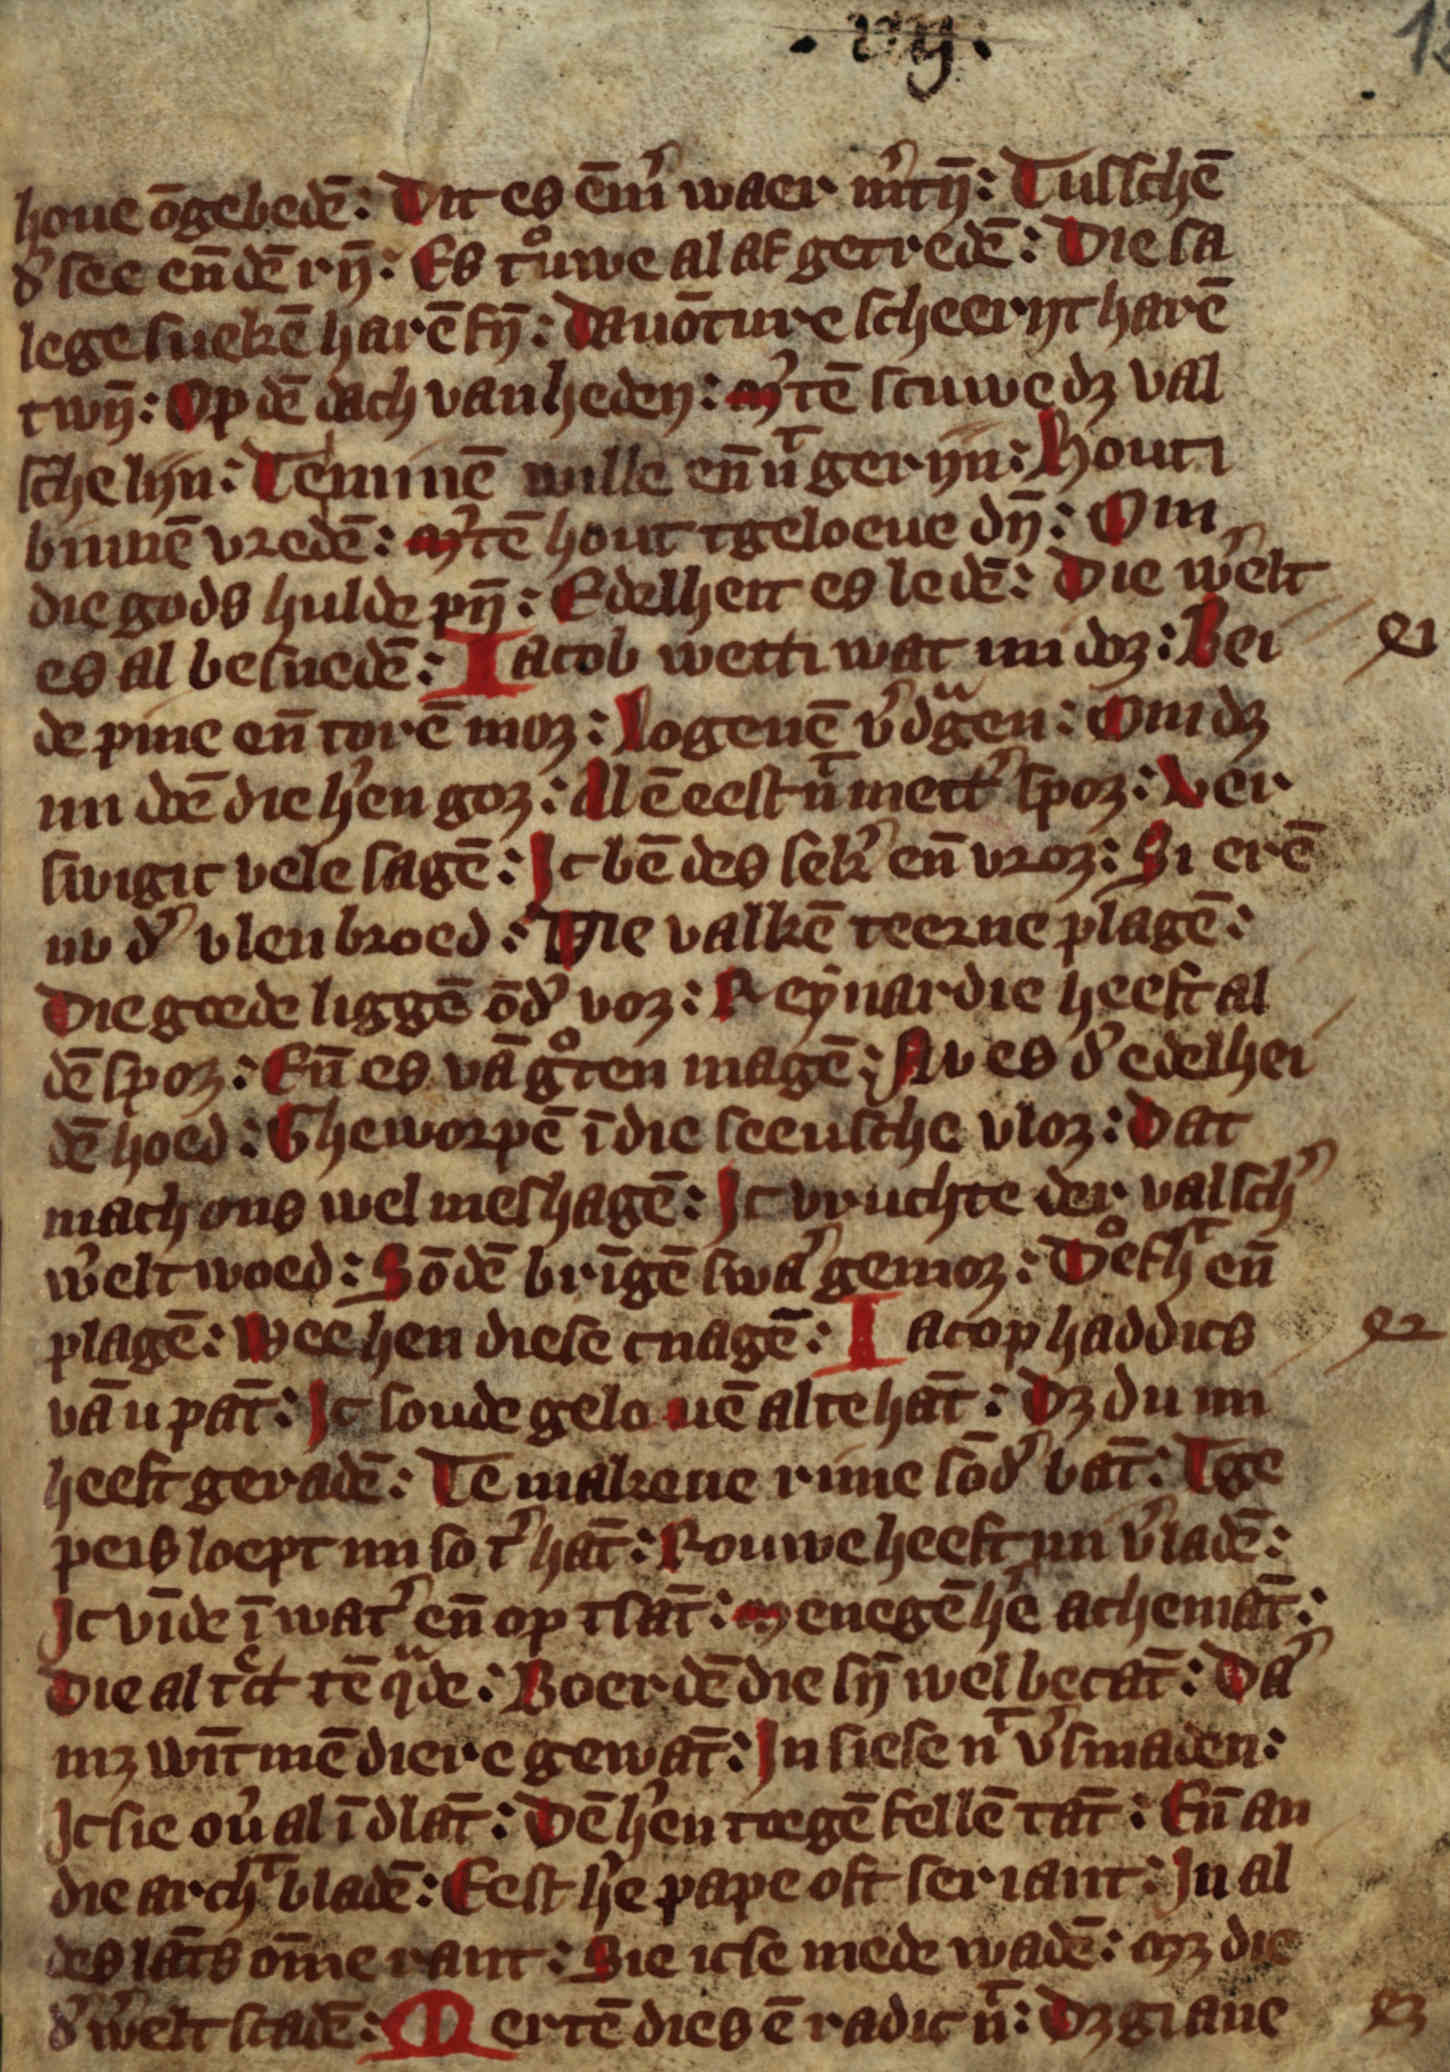 . vij . 13
houe ōgebedē : Dit es ēm̄ waer m̄tȳ : Tusschē
d' see en̄ dē rȳ : Es tᵒuwe al af getredē : Die sa
lege suekē harē fȳ : Dauōture scheerijt harē
twȳ : Op dē dach van heden : m'tē scuwe dꝫ val
schelijn : Te minnē wille en̄ nᵗ gerijn : Houti
binnē vredē : m'tē hout tgeloeue dȳ : Om
die gods hulde pȳ : Edelheit es ledē : Die w'elt
es al besnedē : Iacob wetti wat mi doꝫ : Bei 91
de pine en̄ torē moꝫ : Logenē v'dᵃgen : Om dꝫ
mi doē die h'en goꝫ : Al ē eest nᵗ mett' spoꝫ : Ver
swigic vele sagē : Ic bē des sek' en̄ vroꝫ : Si erē
nv d' vlen broed : Die valkē teerne plagē :
Die goede liggē ōd' voꝫ : Reynardie heeft al
dē spoꝫ : En̄ es vā gᵒten magē : Nv es d' edelhei
dē hoed : Gheworpē ī die seeusche vloꝫ : Dat
mach ons wel meshagē : Ic vruchte der valsch'
w'elt woed : Sōdē brīgē swa' gemoꝫ : Dᵒefhᵗ en̄
plagē : Wee hen diese cnagē : Iacop haddics 92
vā u pāt : Ic soude gelouē alte hāt : Dꝫ du mi
heeft geradē : Te makene rime sōd' bāt : Tge
peis loept mi so t' hāt : Rouwe heeft mi v'ladē :
Ic vīde ī wat' en̄ op tsāt : menegē h'e achemāt :
Die al tᵉct tē qᵃde : Boerdē die sȳ wel becāt : Da'
mꝫ wīt mē diere gewāt : In siese nᵗ v'smaden :
Ic sie ou'al ī dlāt : Dē h'en toegē fellē tāt : En̄ an
die archᵗ bladē : Eest h'e pape oft seriant : In al
des lāts om̄e rant : Sie icse mede wadē : mꝫ die
d' w'elt scadē : Mertē dies ē radic nᵗ : Dꝫ gi aue 93